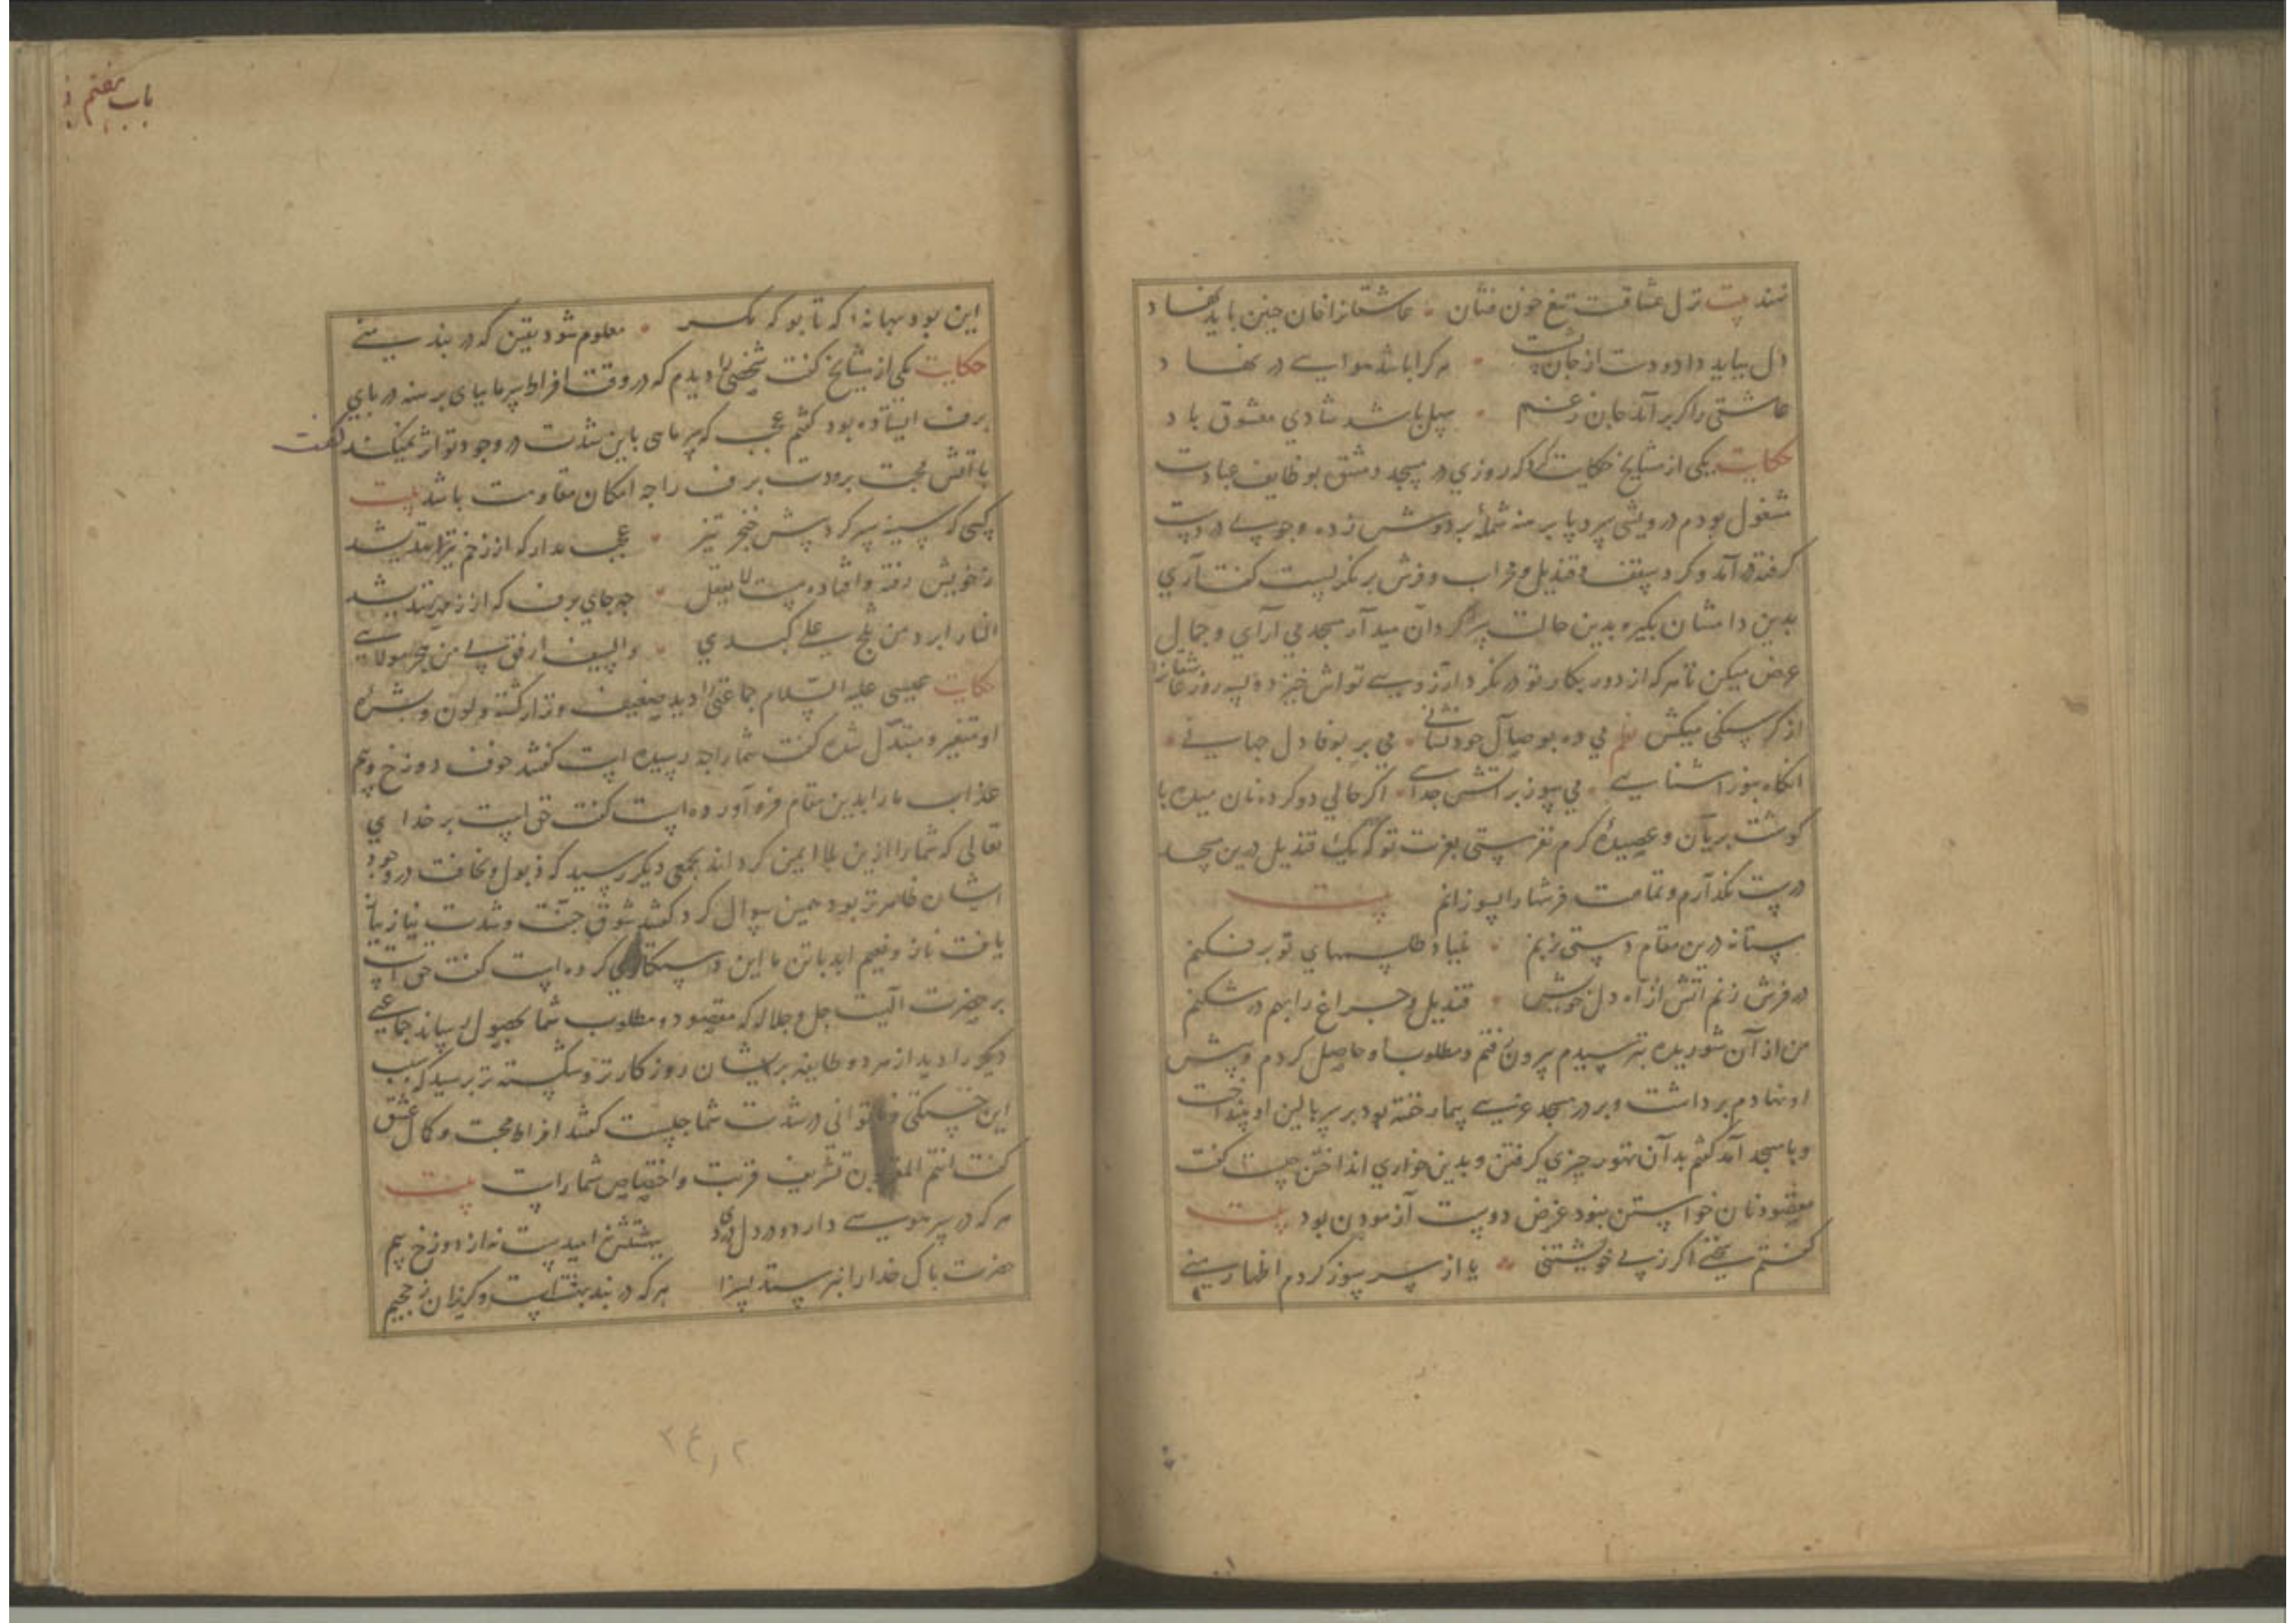 نهند بیت نزل عشاقت تیغ خون فشان عاشقانرا خان چنین باید نهاد
دل بباید داد و دست از جان بشست هر کرا باشد هوایی در نهاد
عاشقی را گر برآید جان ز غم سهل باشد شادی معشوق باد
حکایت یکی از مشایخ حکایت کرد که روزی در مسجد دمشق بوظایف عبادت
مشغول بودم درویشی سر و پا برهنه شملهٔ بر دوش زده و چوبی در دست
گرفته درآمد و گرد سقف و قندیل و محراب و فرش بر نگریست گفت آری
بدین دامشان بگیر و بدین حالت سرگردان میدار مسجد می آرای و جمال
عرض میکن تا هر که از دور بکار تو در نگرد آرزوی تواش خیزد و سه روز
از گرسنگی میکش می ده بوصال خود نشانی می بر بوفا دل جهانی
انگاه بسوز آشنایی می سوز بر آتش جدایی اگر حالی دو گرده نان میده با
گوشت بریان و عصیدهٔ گرم نفرستی بعزت تو که یک قندیل درین مسجد
درست نگذارم و تمامت فرشها را بسوزانم بیت
مستانه درین مقام دستی بزنم بنیاد طلسمهای تو بر فکنم
در فرش زنم اتش از آه دل خویش قندیل و چراغ را بهم در شکنم
من از آن شوریده بترسیدم بیرون رفتم و مطلوب او حاصل کردم و پیش
او نهادم برداشت و بر در مسجد غریبی بیمار خفته بود بر سر بالین او بینداخت
و با مسجد آمد گفتم بدآن تهور چیزی گرفتن و بدین خواری انداختن چیست گفت
مقصود نان خواستن نبود غرض دوست آزمودن بود بیت
گفتم سخنی اگر ز بی خویشتنی یا از سر سوز کردم اظهار منی
این بود بهانهٔ که تا بو که مگر معلوم شود یقین که در بند منی
حکایت یکی از مشایخ گفت شخصی را دیدم که در وقت افراط سرما بپای برهنه در پای
برف ایستاده بود گفتم عجب که سرمای باین شدت در وجود تو اثر نمیکند گفت
با آتش محبت برودت برف را چه امکان مقاومت باشد بیت
کسی که سینه سپر کرد پیش خنجر تیز عجب مدار که از زخم تیر نندیشد
ز خویش رفته و افتاده مست لا یعقل چه جای برف که از زمهریر نندیشد
النار ابرد من ثلج علی کبدی والسیف ارفق بی من هجر مولائی
حکایت عیسی علیه السلام جماعتی را دید ضعیف و نزار گشته و لون و بشرهٔ
او متغیر و متبدل شده گفت شما را چه رسیده است گفتند خوف دوزخ و بیم
عذاب ما را بدین مقام فرو آورده است گفت حق است بر خدای
تعالی که شما را ازین بلا ایمن گرداند بجمعی دیگر رسید که ذبول و نحافت در وجود
ایشان ظاهرتر بود همین سوال کرد گفتند شوق جنت و شدت نیاز بیافت
یافت ناز و نعیم ابد با تن ما این دستکاری کرده است گفت حق است
بر حضرت الهیت جل و جلاله که مقصود و مطلوب شما بحصول رساند جماعتی
دیگر را دید از هر دو طایفه پریشان روزگارتر و شکسته تر پرسید که سبب
این خستگی و ناتوانی و شدت شما چیست گفتند افراط محبت و کمال عشق
گفت انتم المقربون تشریف قربت و اختصاص شما راست بیت
هر که در سر هوسی دارد و در دل دردی بهشتش امیدست نه از دوزخ بیم
حضرت پاک خدا را نپرستد بسزا هر که در بند بهشتست و گریزان ز جحیم
باب هفتم
۳۶۲